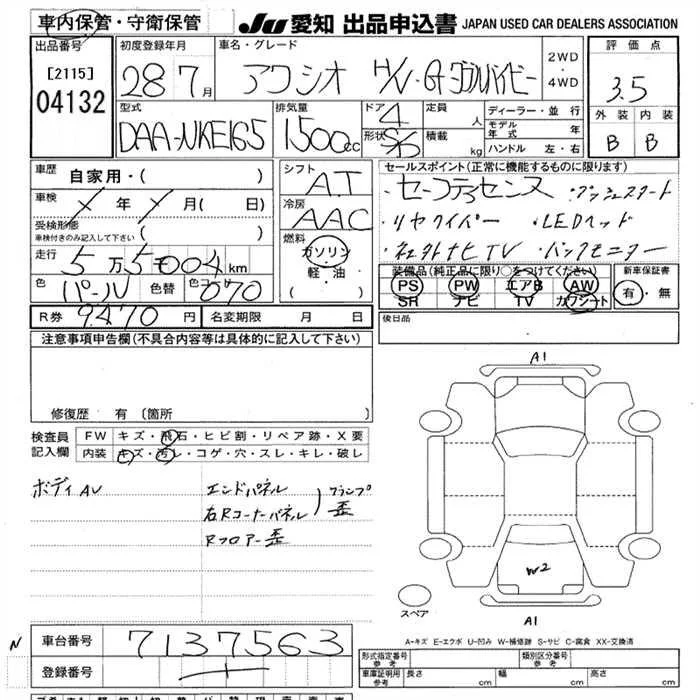 車内保管・守衛保管 JU 愛知 出品申込書 JAPAN USED CAR DEALERS ASSOCIATION
出品番号 初度登録年月 車名・グレード 2WD ・ 4WD 評価点
[2115] 04132 28 7月 アクシオ H/V・G ダブルバイビー 3.5
型式 排気量 ドア 4 定員 人 ディーラー・並行 外装 内装
DAA-NKE165 1500cc 形状 積載 kg モデル年式 年 B B
ハンドル 左・右
車歴 自家用・( ) シフト AT セールスポイント(正常に機能するものに限ります)
車検 年 月( 日) 冷房 AAC ・セーフティセンス ・プッシュスタート
受検形態 車検付きのみ記入して下さい ( ) ・リヤワイパー ・LEDヘッド
走行 5万5千004km 燃料 ガソリン・軽・油 ( ) ・社外ナビTV ・バックモニター
色 パール 色替 色コード 070 装備品(純正品に限り○をつけてください) 新車保証書
PS PW エアB AW 有・無
SR ナビ TV カワシート
R券 9470円 名変期限 月 日 後日品
注意事項申告欄(不具合内容等は具体的に記入して下さい)
修復歴 有(箇所 )
検査員記入欄 FW キズ・飛石・ヒビ割・リペア跡・X要
内装 キズ・汚レ・コゲ・穴・スレ・キレ・破レ
ボディAV エンドパネル
右Rコーナーパネル
Rフロアー歪
A1
W2
スペア A1
A-キズ E-エクボ U-凹み W-補修跡 S-サビ C-腐食 XX-交換済
N 車台番号 7137563 形式指定番号 参考 類別区分番号 参考
登録番号 車庫証明用 参考 長さ cm 幅 cm 高さ cm